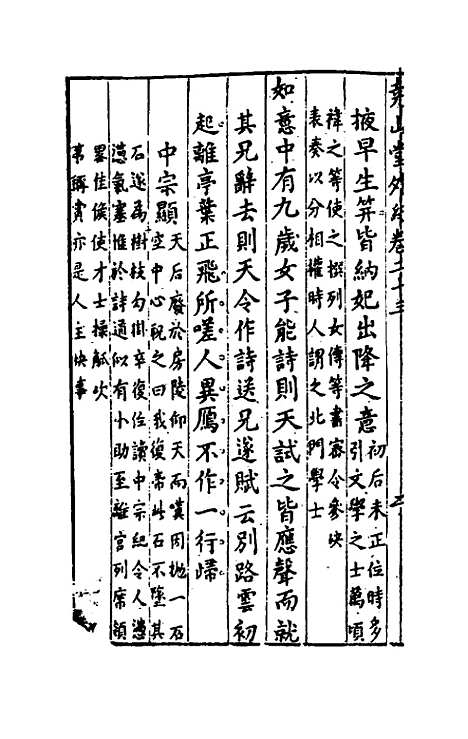 堯山堂外紀卷二十三
掖早生笄皆納妃出降之意初后未正位時多
引文學之士萬頃
禕之等使之撰列女傳等書密令參決
表奏以分相權時人謂之北門學士
如意中有九歲女子能詩則天試之皆應聲而就
其兄辭去則天令作詩送兄遂賦云別路雲初
起離亭葉正飛所嗟人異鴈不作一行歸
中宗顯天后廢於房陵仰天而嘆因拋一石
空中心祝之曰我復帝此石不墜其
石遂為樹枝勾掛卒復位讀中宗紀令人懣
懣氣塞惟於詩道似有小助至離宮列席領
畧佳候使才士操觚次
第稱賞亦是人主快事